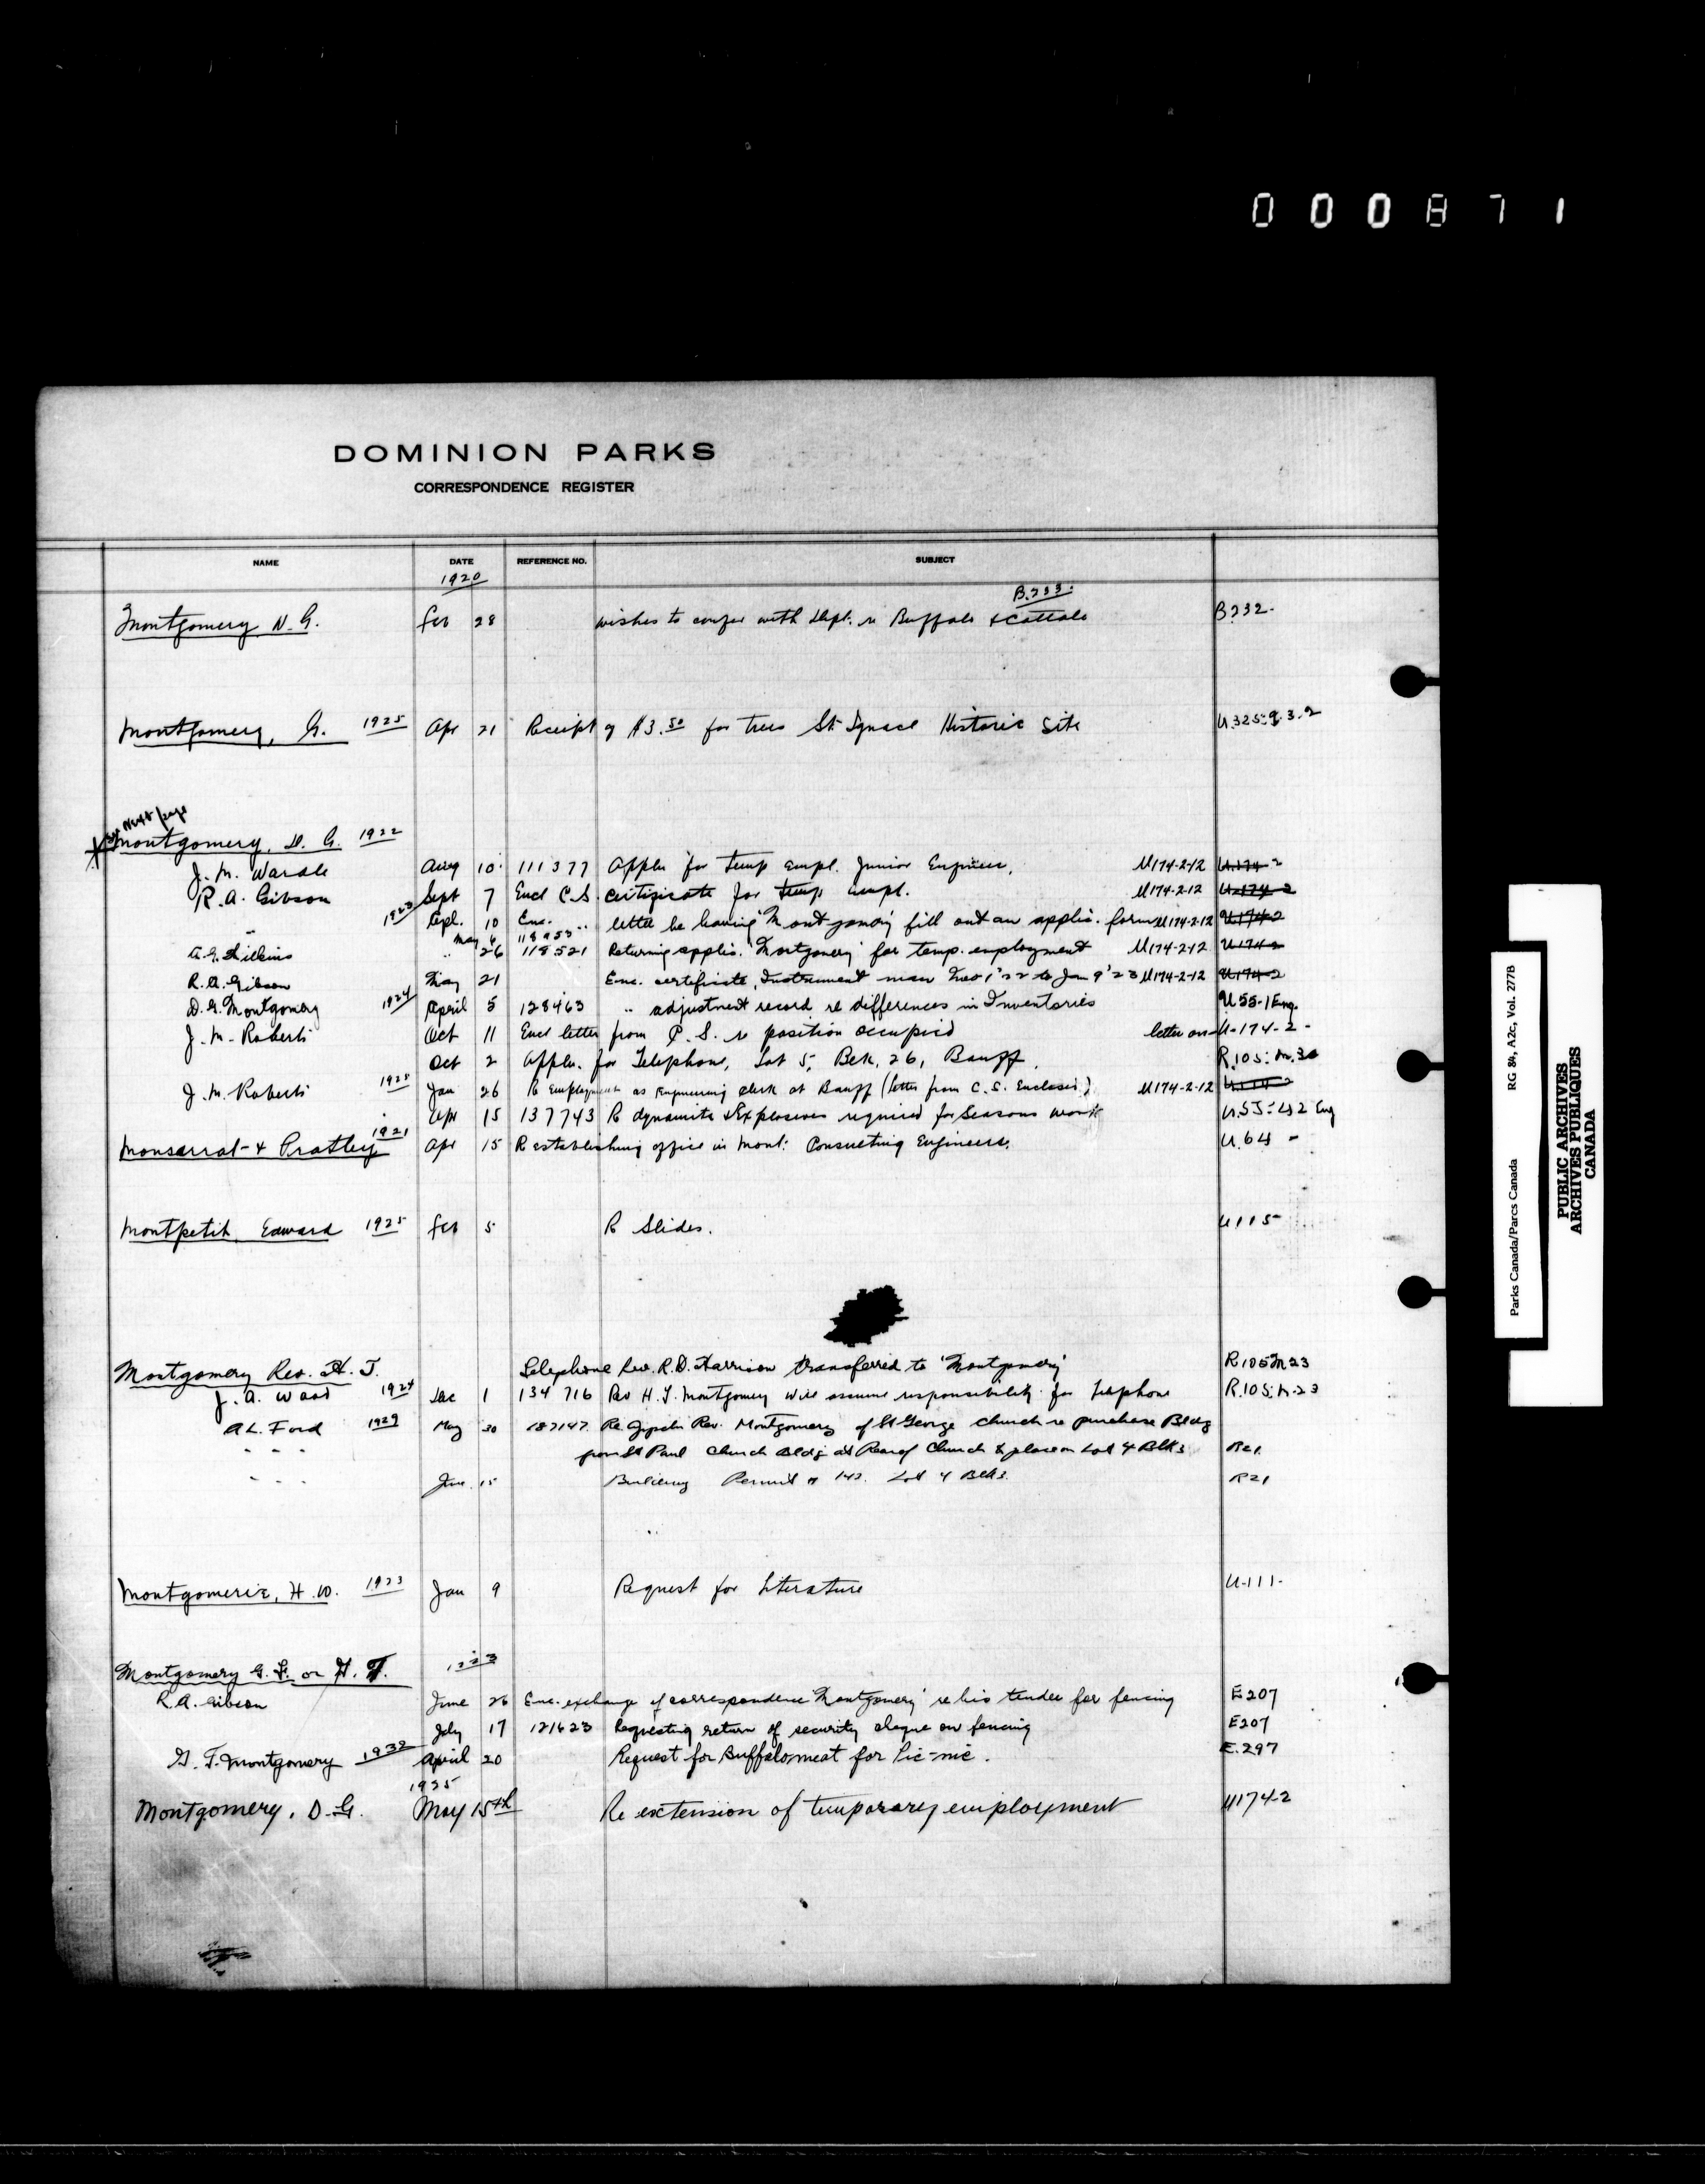 000871
DOMINION PARKS
CORRESPONDENCE REGISTER
NAME DATE REFERENCE NO. SUBJECT
1920
B.233.
Montgomery N. G. Feb 28 wishes to confer with Dept. re Buffalo & Cattalo B232.
Montgomery, G. 1925 Apr 21 Receipt of $3.50 for trees St. Ignace Historic Site U.325-9.3.2
See Next page
Montgomery, D. G. 1922
J. M. Wardle Aug 10 111377 Appln for temp empl. Junior Engineer. U174-2-12 U.174-2
R. A. Gibson Sept 7 Encl C.S. certificate for temp empl. U174-2-12 U-174-2
1923 10 Enc. letter he having 'Montgomery' fill out an applic. form U174-2-12 U.174-2
May 4 118953
26 118521 Returning applic. 'Montgomery' for temp. employment U174-2-12 U174-2
R.A. Gibson May 21 Enc. certificate, Instrument man Nov 1 '22 to Jan 9 '23 U174-2-12 U174-2
D.G. Montgomery 1924 April 5 128463 " adjustment record re differences in Inventories U55-1 Eng.
J. M. Roberts Oct 11 Encl letter from C. S. re position occupied letter on U-174-2-
Oct 2 Appln. for Telephone, Lot 5, Blk, 26, Banff R.105-M.30
J. M. Roberts 1925 Jan 26 Re Employment as Engineering Clerk at Banff (letter from C.S. Enclosed) U174-2-12 U174-2
Apr 15 137743 Re dynamite & Explosives required for Seasons work U.55-42 Eng
Monsarrat & Pratley 1921 Apr 15 Re establishing office in Mont. Consulting Engineers. U.64 -
Montpetit, Edward 1925 Feb 5 Re Slides. U115-
Montgomery Rev. H. T. Telephone Rev. R.D. Harrison transferred to 'Montgomery' R105M23
J. A. Wood 1924 Dec 1 134716 Rev H. T. Montgomery will assume responsibility for telephone R.105-M-23
A L. Ford 1929 May 30 187147 Re Rev. Montgomery of St George Church re purchase Bldg
" " " from St Paul Church Bldg at Rear of Church & place on Lot 4 Blk 3 R21
" " " June 15 Building Permit # 142. Lot 4 Blk 3. R21
Montgomerie, H. W. 1923 Jan 9 Request for Literature U-111-
Montgomery G. F. or H. T. 1923
R.A. Gibson June 26 Enc. exchange of correspondence 'Montgomery' re his tender for fencing E207
July 17 121623 Requesting return of security cheque on fencing E207
G. F. Montgomery 1932 April 20 Request for Buffalo meat for Pic-nic. E.297
1935
Montgomery, D. G. May 15th Re extension of temporary employment U174-2
Parks Canada/Parcs Canada RG 84, A2c, Vol. 277B
PUBLIC ARCHIVES
ARCHIVES PUBLIQUES
CANADA